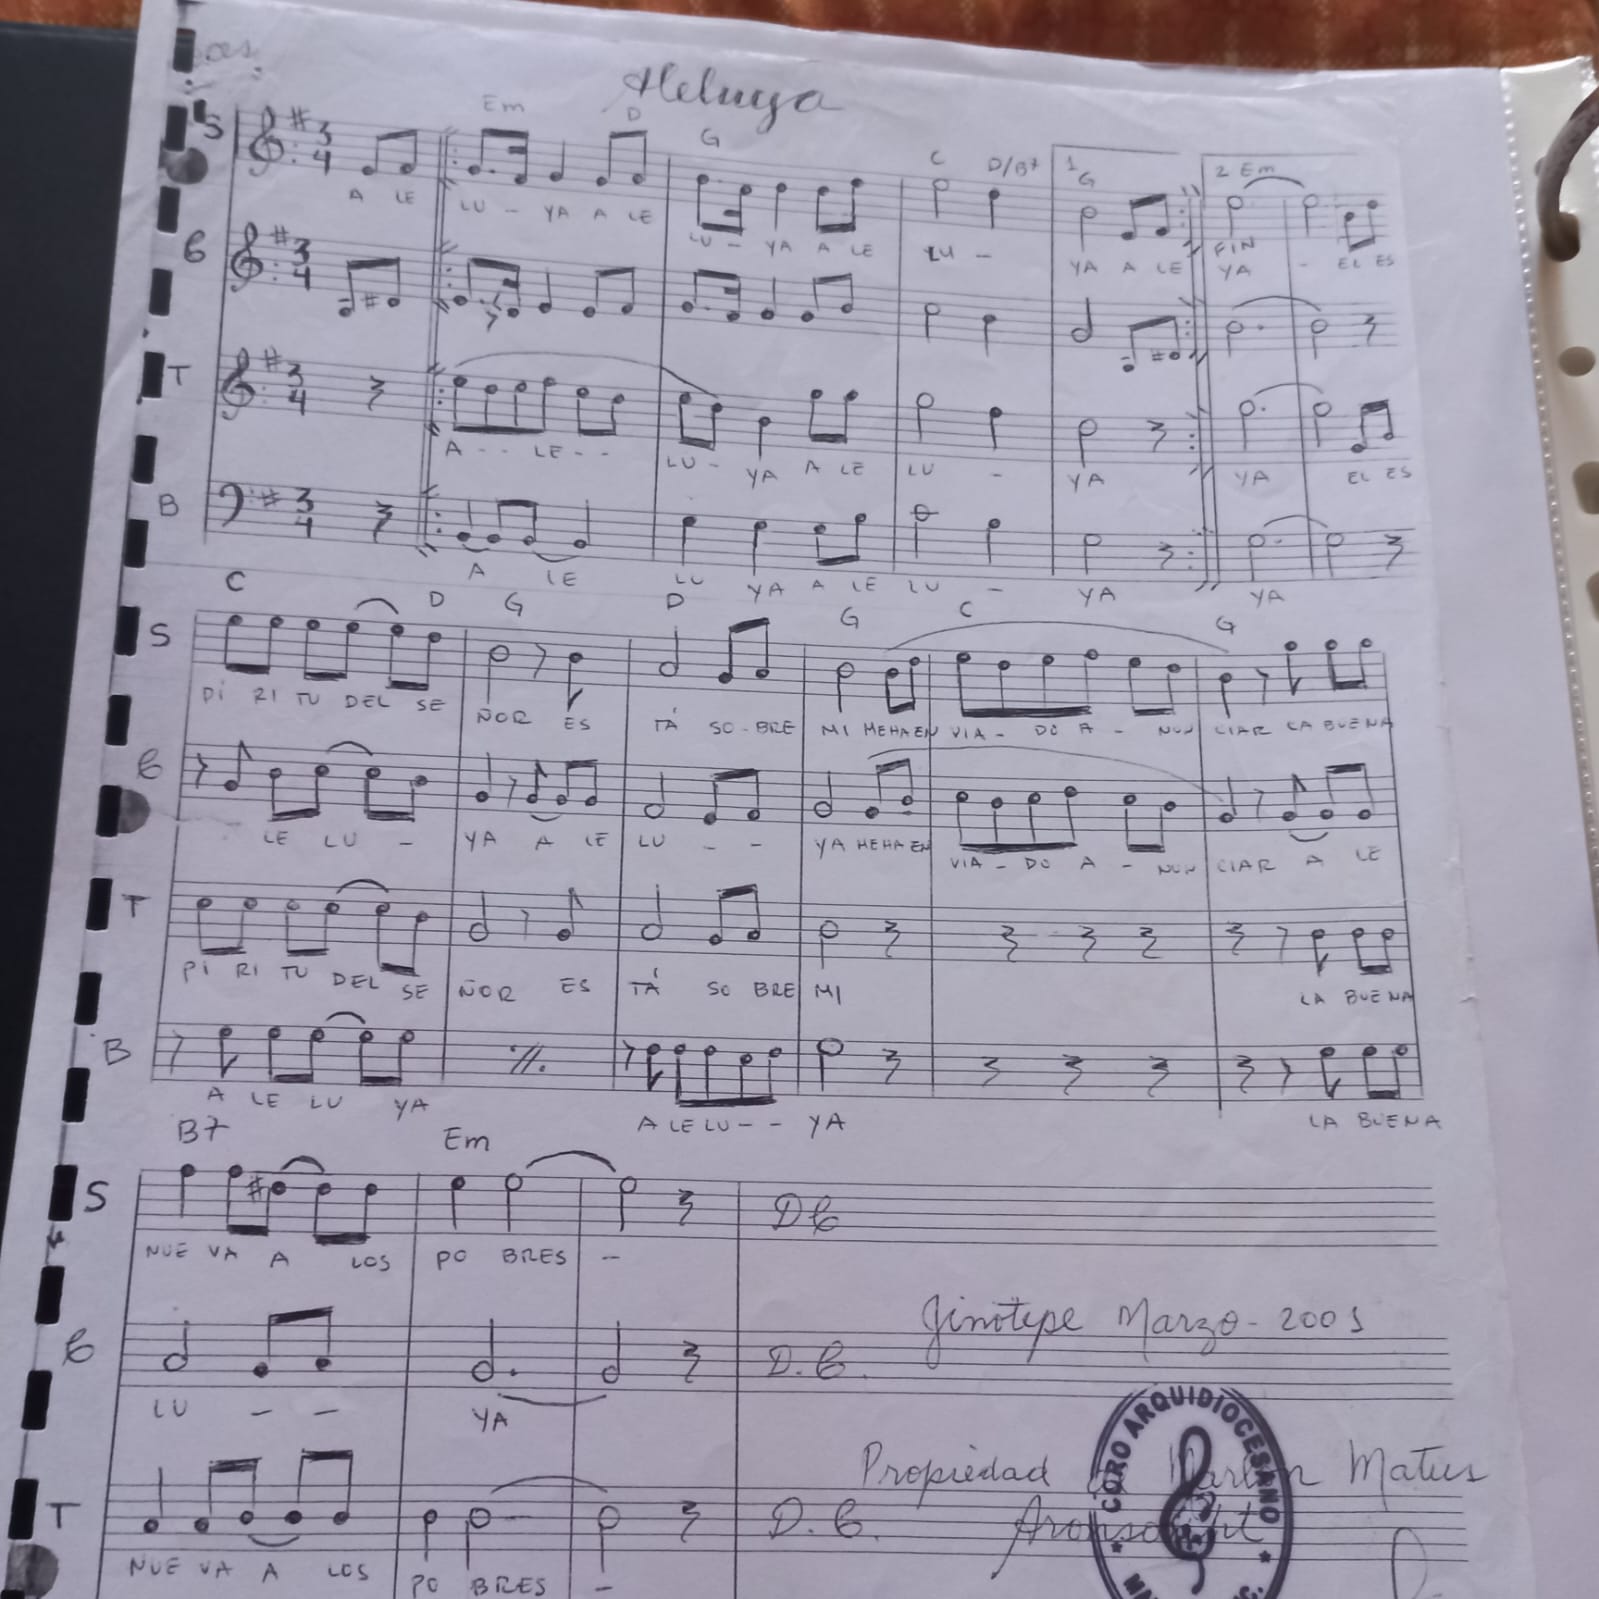 Aleluya
Em D G C D/B7 1 G 2 Em
S 3/4
A LE LU - YA A LE LU - YA A LE LU - YA A LE FIN YA - EL ES
C 3/4
T 3/4
A - - LE - - LU - YA A LE LU - YA YA EL ES
B 3/4
A LE LU YA A LE LU - YA YA
C D G D G C G
S
PÍ RI TU DEL SE ÑOR ES TÁ SO - BRE MI MEHAEN VIA - DO A - NUN CIAR LA BUENA
C
LE LU - YA A LE LU - - YA MEHAEN VIA - DO A - NUN CIAR A LE
T
PÍ RI TU DEL SE ÑOR ES TÁ SO BRE MI LA BUENA
B
A LE LU YA A LE LU - - YA LA BUENA
B7 Em
S D C
NUE VA A LOS PO BRES -
Jinotepe Marzo - 2001
C D. C.
LU - - YA
Propiedad Marlon Matus
T D. C.
NUE VA A LOS PO BRES -
CORO ARQUIDIOCESANO